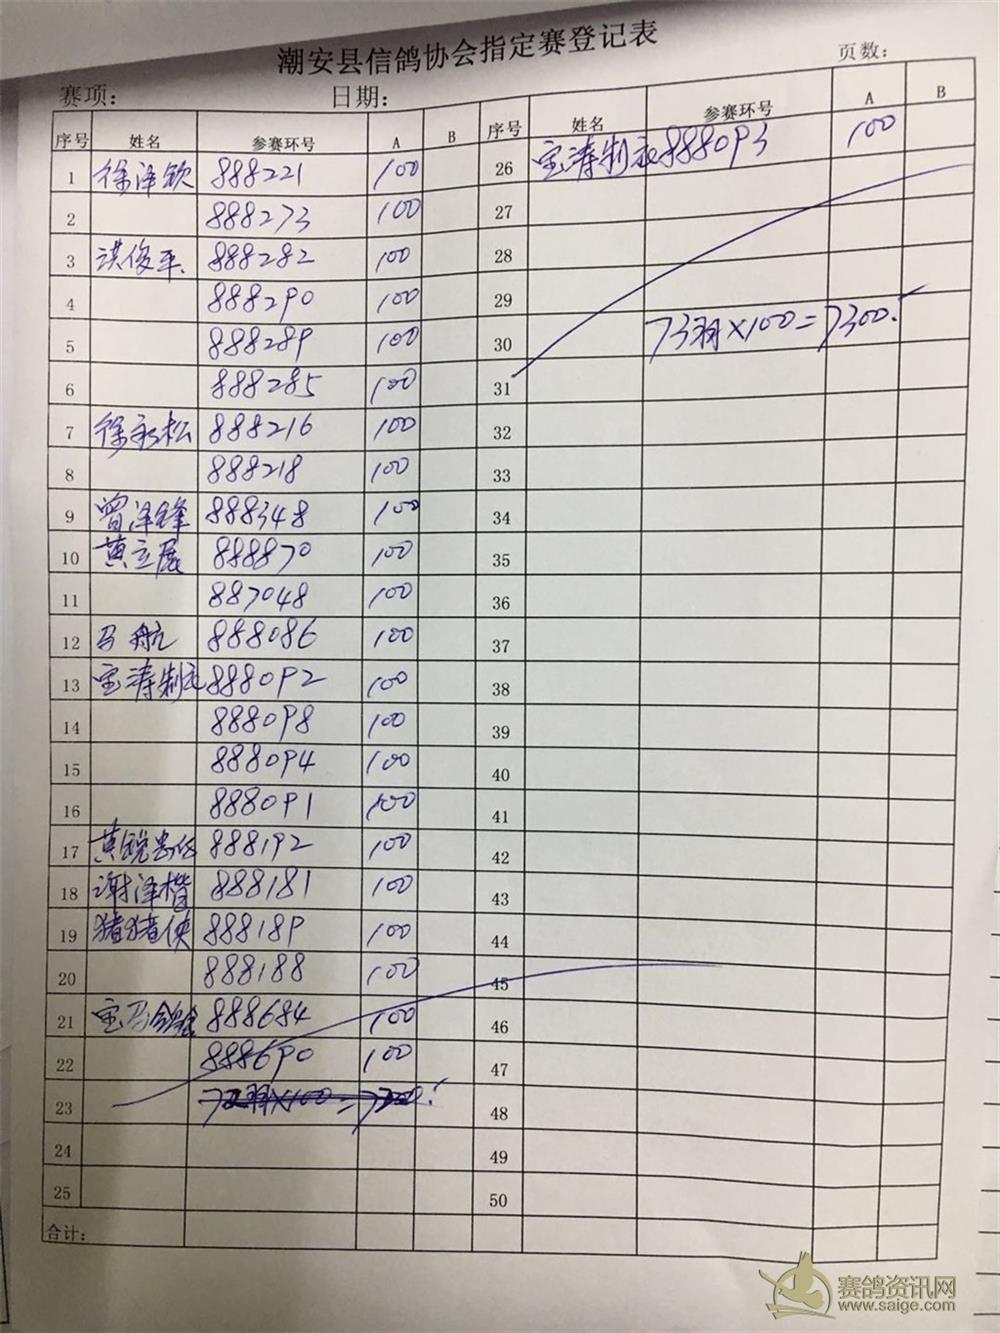 潮安县信鸽协会指定赛登记表
赛项： 日期： 页数：
序号 姓名 参赛环号 A B
1 徐泽钦 888221 100
2 888273 100
3 洪俊平 888282 100
4 888290 100
5 888289 100
6 888285 100
7 徐永松 888216 100
8 888218 100
9 曾泽锋 888348 100
10 黄立展 888870 100
11 887048 100
12 马航 888086 100
13 宝涛制衣 888092 100
14 888098 100
15 888094 100
16 888091 100
17 黄 888192 100
18 谢泽楷 888181 100
19 猪猪侠 888189 100
20 888188 100
21 宝马 888684 100
22 888690 100
23 72羽×100=7200.
24
25
合计：
序号 姓名 参赛环号 A B
26 宝涛制衣 888093 100
27
28
29
30 73羽×100=7300.
31
32
33
34
35
36
37
38
39
40
41
42
43
44
45
46
47
48
49
50
赛鸽资讯网
www.saige.com